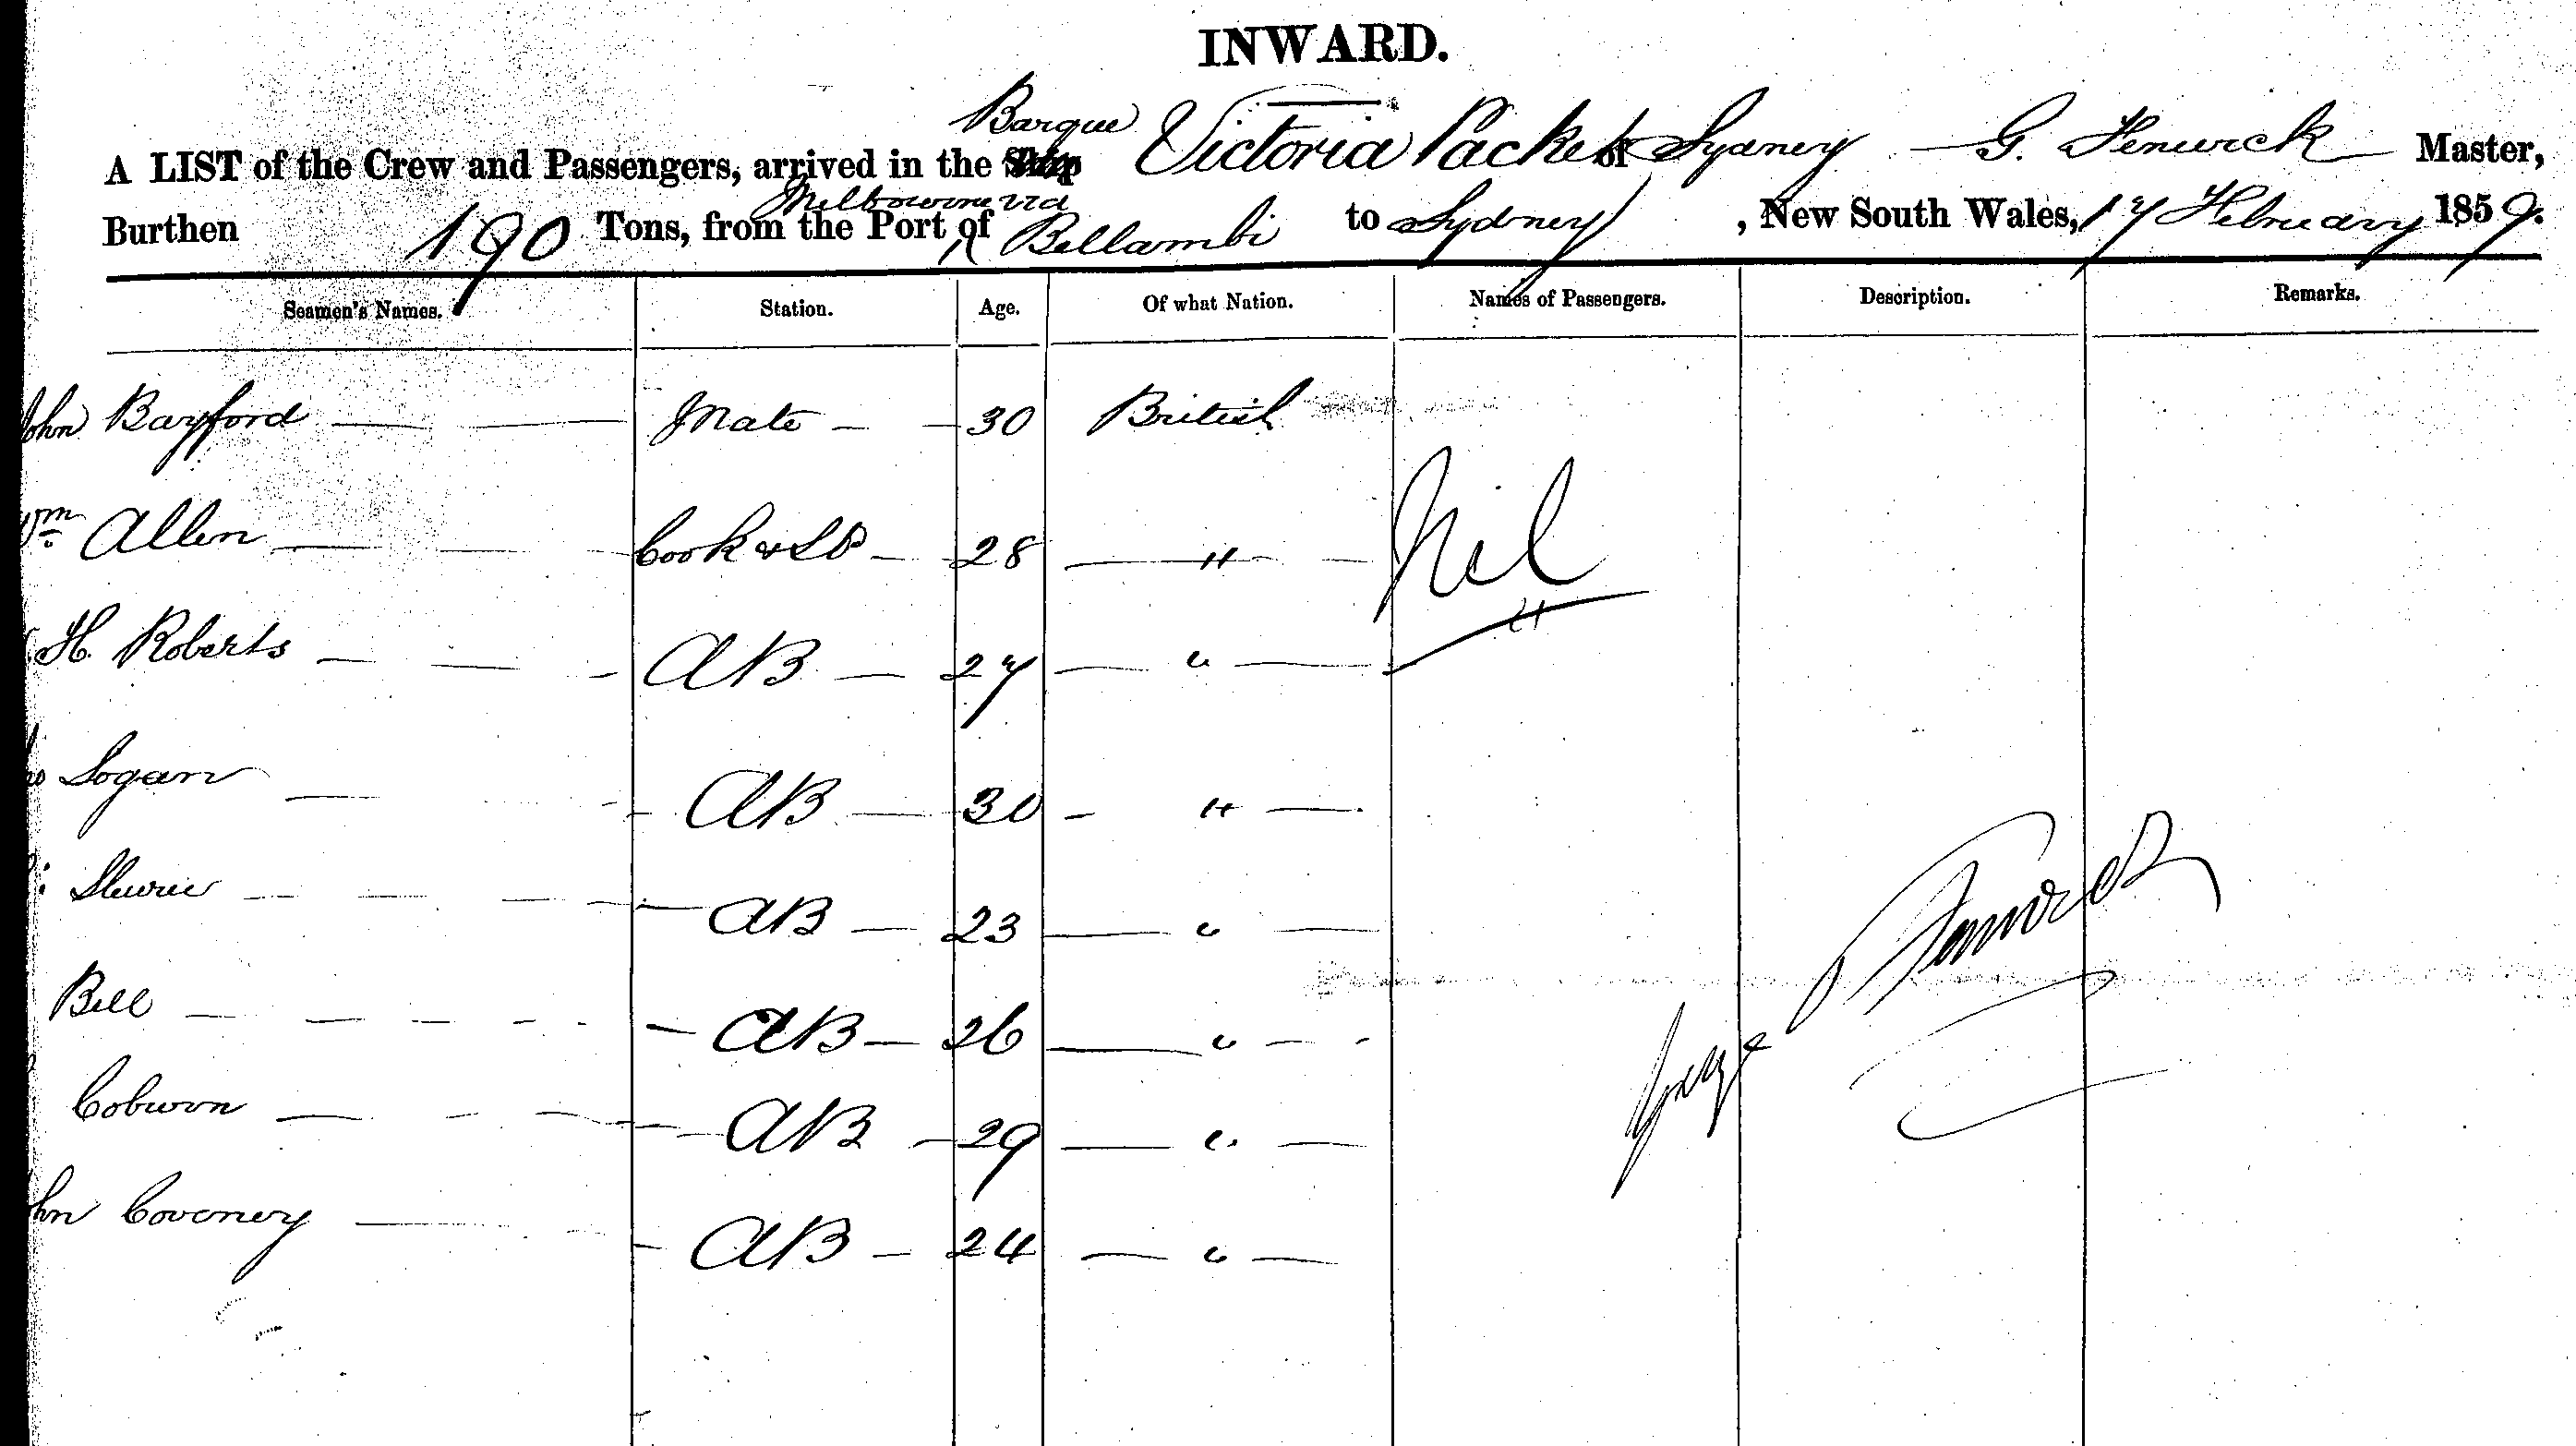 INWARD.
Barque
A LIST of the Crew and Passengers, arrived in the Ship Victoria Packet of Sydney — G. Fenwick Master,
Melbourne via
Burthen 190 Tons, from the Port of Bellambi to Sydney, New South Wales, 17 February 1859.
Seamen's Names. Station. Age. Of what Nation. Names of Passengers. Description. Remarks.
John Bayford Mate 30 British
Wm Allen Cook & St 28 " Nil
H. Roberts AB 27 "
Logan AB 30 "
AB 23 "
Bell AB 26 "
Coburn AB 29 "
John Coveney AB 24 "
George Fenwick